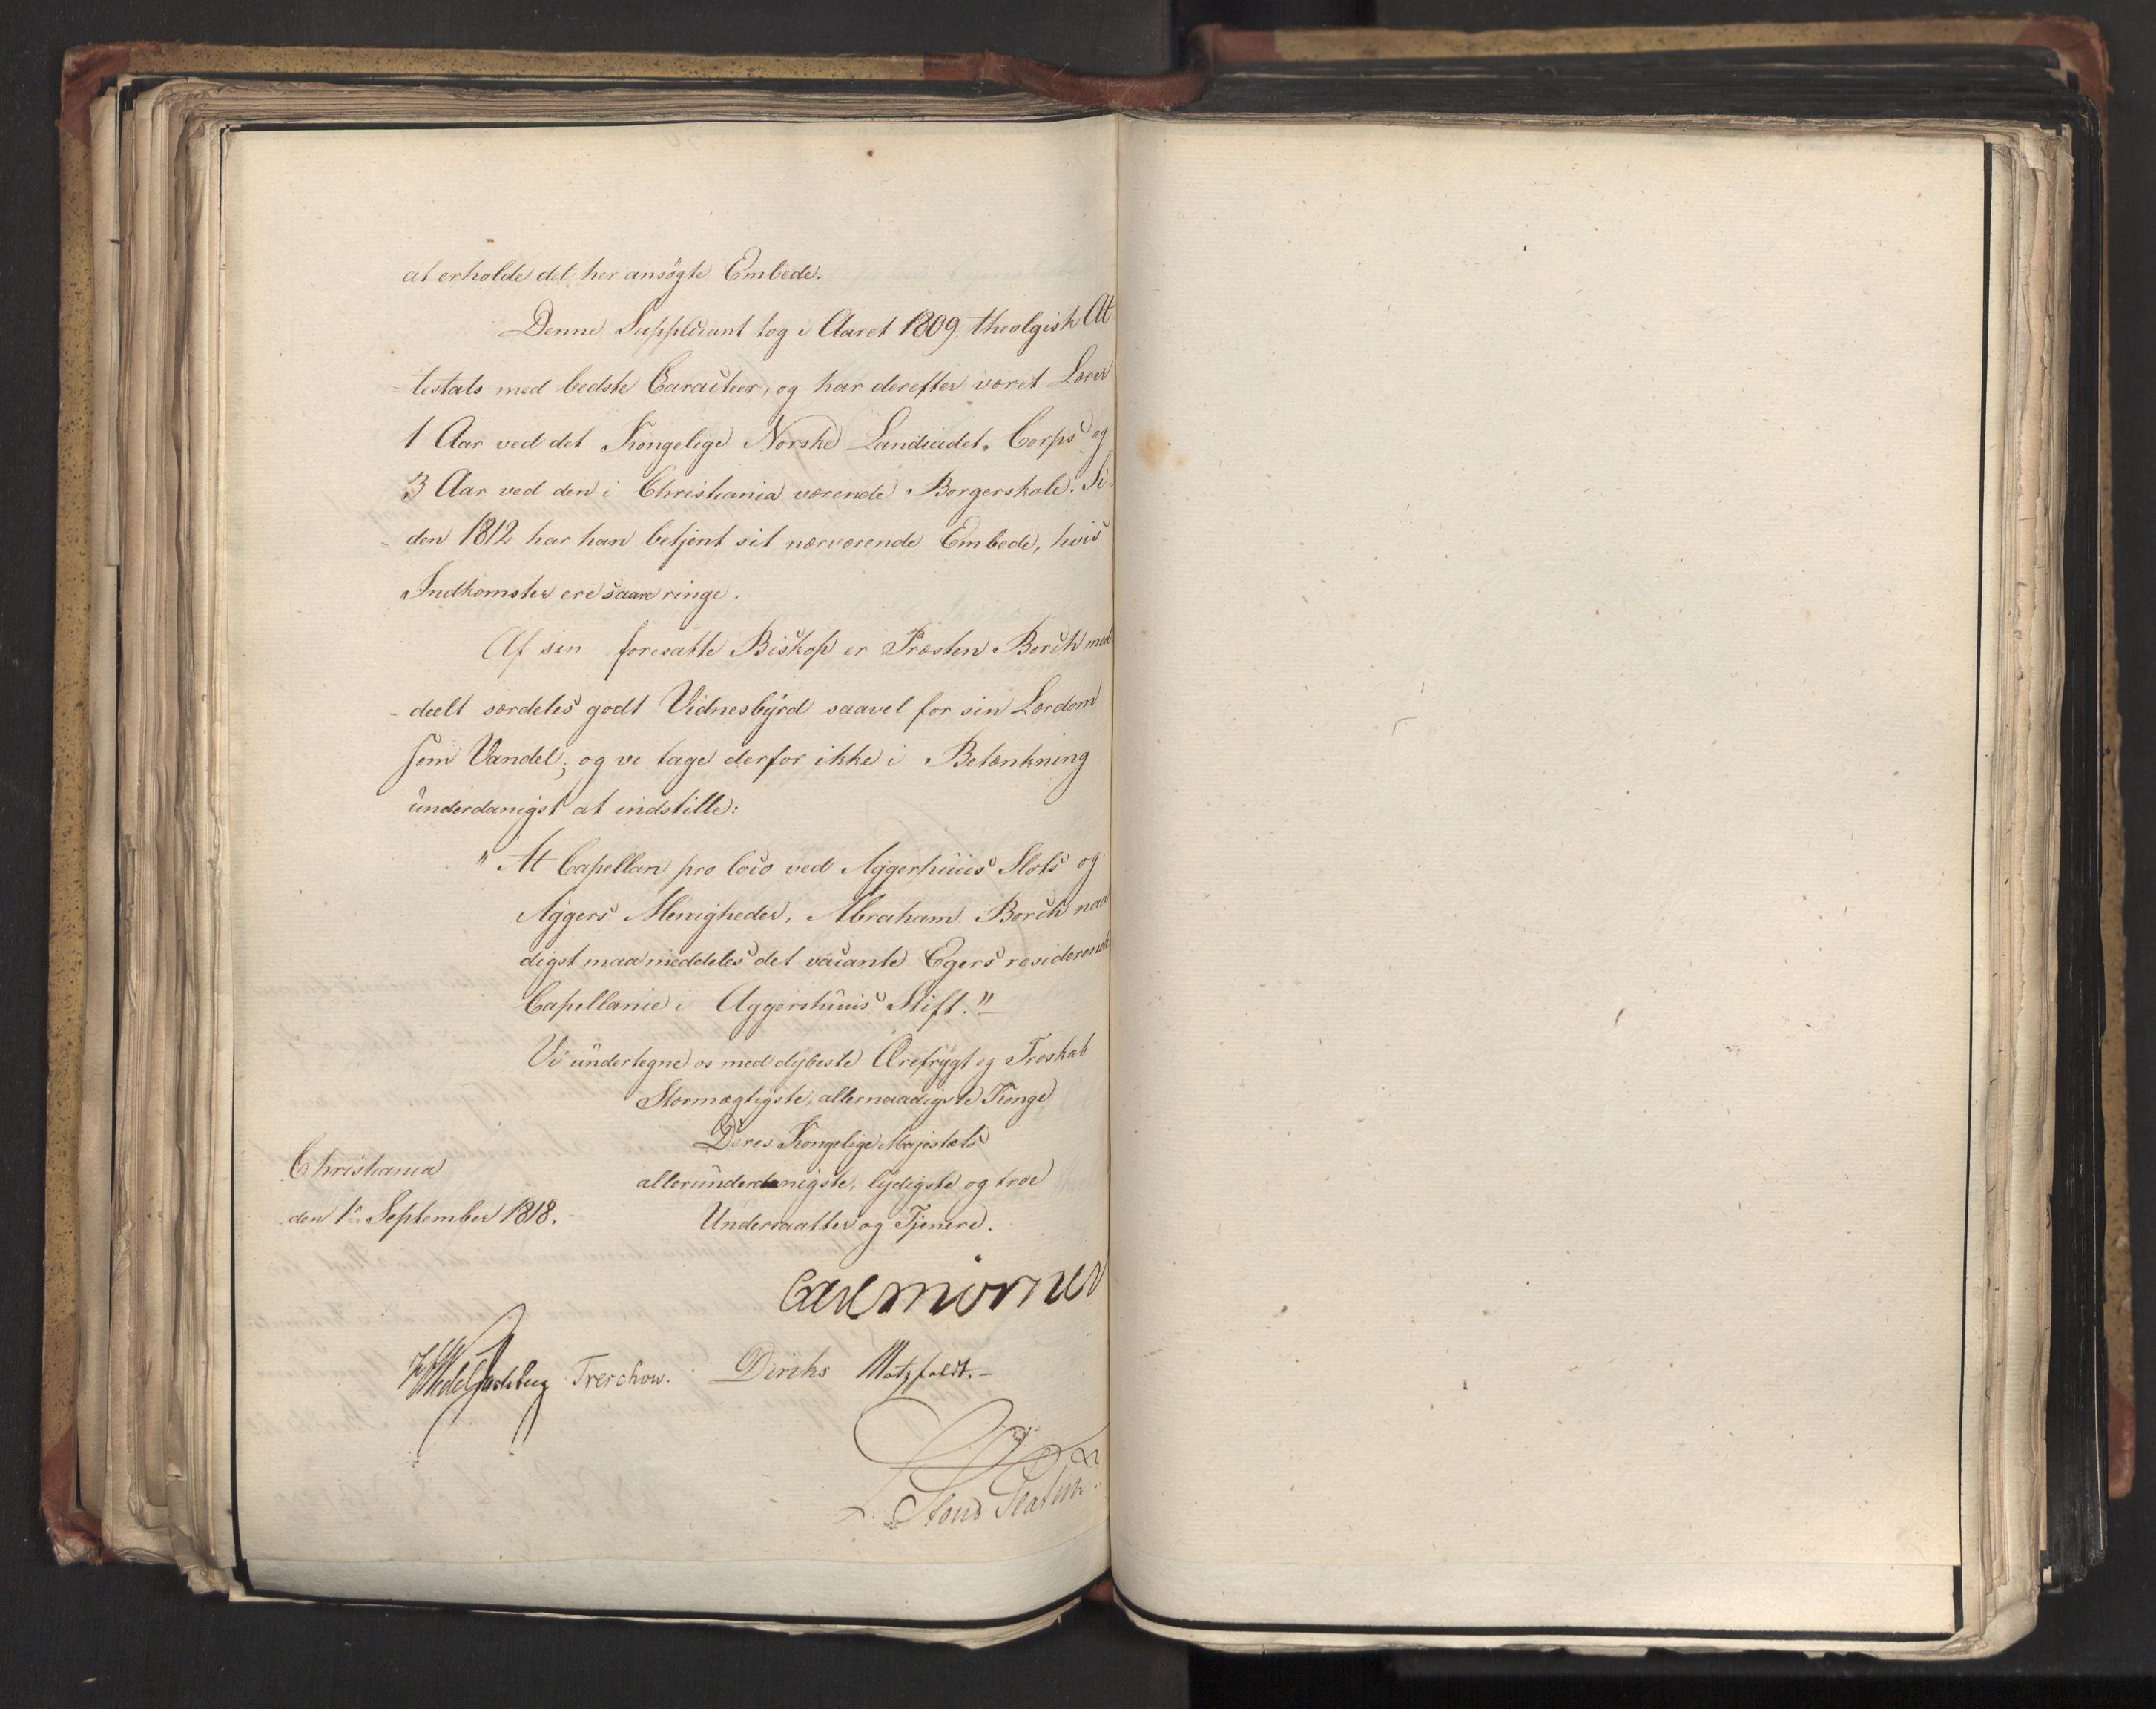 at erholde det her ansögte Embede.
Denne Supplicant tog i Aaret 1809 theolgisk At
=testats med bedste Caracteer, og har derefter været Lærer
1 Aar ved det Kongelige Norske Landcadet-Corps og
3 Aar ved den i Christiania værende Borgerskole. Si=
=den 1812 har han betjent sit nærværende Embede, hvis
Indkomster ere saare ringe.
Af sin foresatte Biskop er Præsten Borch med
-deelt særdeles godt Vidnesbyrd saavel for sin Lærdom
som Vandel; og vi tage derfor ikke i Betænkning
underdanigst at indstille:
"At Capellan pro loco ved Aggerhuus Slots og
Aggers Menigheder, Abraham Borch naa
digst maa meddeles det vacante Egers residerende
Capellanie i Aggershuus Stift."
Vi undertegne os med dybeste Ærefrygt og Troskab
Stormægtigste, allernaadigste Konge
Deres Kongelige Majestæts
allerunderdanigste, lydigste og troe
Undersaatter og Tjenere.
Christiania
den 1ste September 1818.
Carl Mörner
HWedelJarlsberg Treschow. Diriks Motzfeldt.